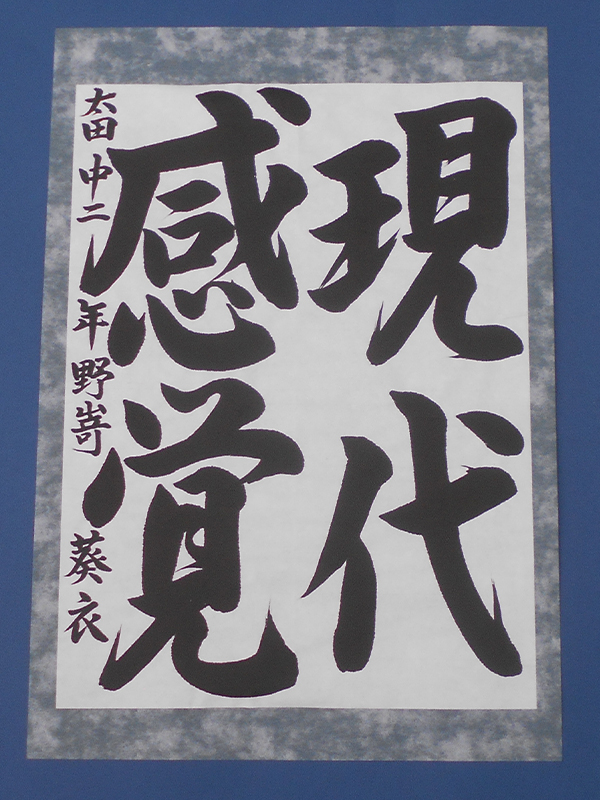 現代
感覚
太田中二年野嵜葵衣